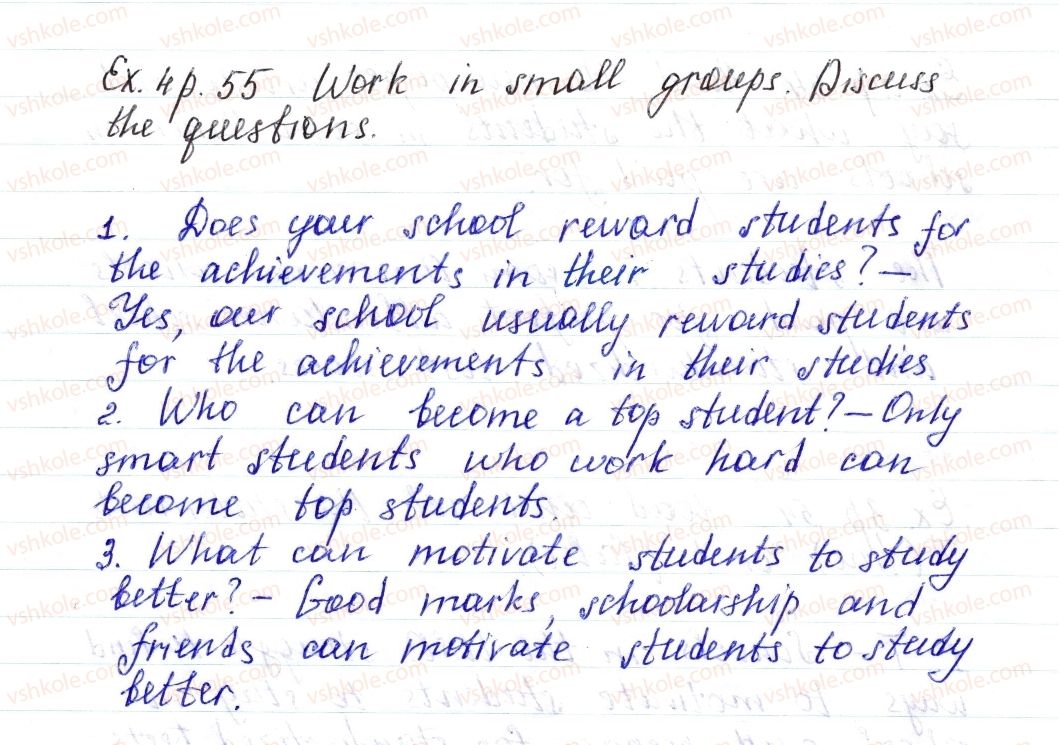 Ex. 4 p. 55 Work in small groups. Discuss
the questions.
1. Does your school reward students for
the achievements in their studies? –
Yes, our school usually reward students
for the achievements in their studies.
2. Who can become a top student? – Only
smart students who work hard can
become top students.
3. What can motivate students to study
better? – Good marks, schoolarship and
friends can motivate students to study
better.